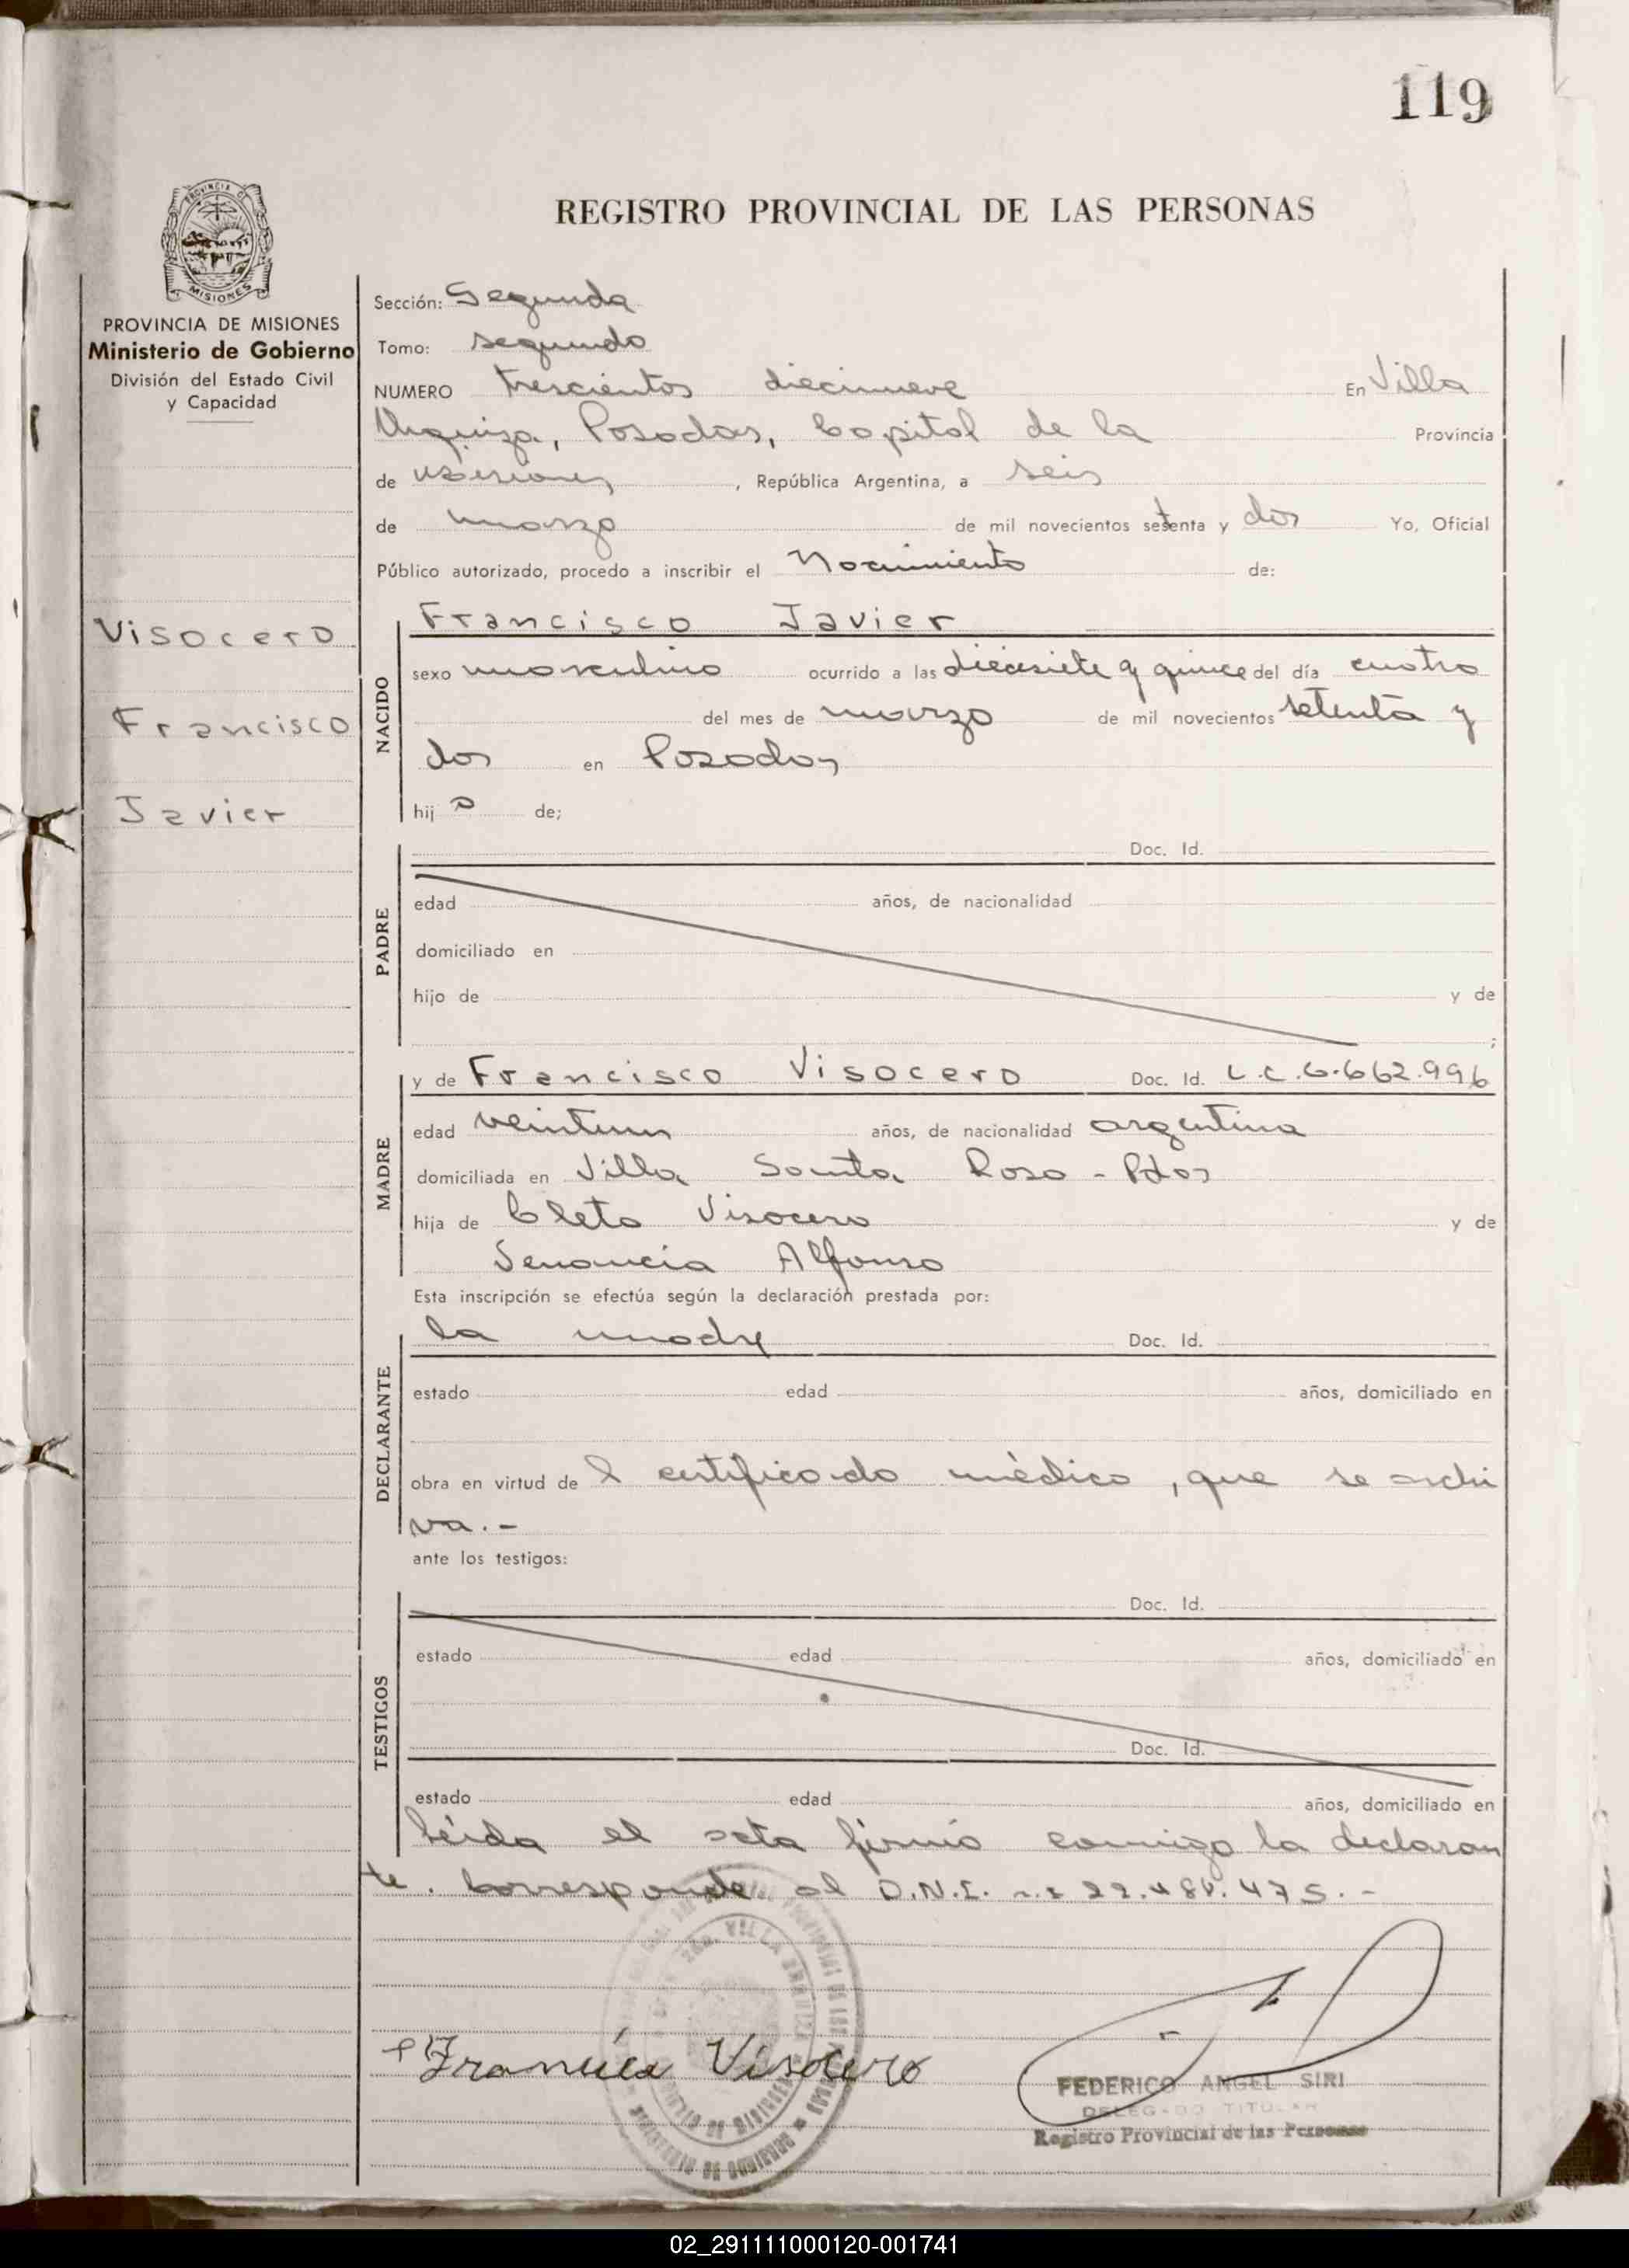 119
PROVINCIA DE
MISIONES
REGISTRO PROVINCIAL DE LAS PERSONAS
PROVINCIA DE MISIONES
Ministerio de Gobierno
División del Estado Civil
y Capacidad
Visocero
Francisco
Javier
Sección: Segunda
Tomo: segundo
NUMERO trescientos diecinueve En Villa
Urquiza, Posadas, Capital de la Provincia
de Misiones, República Argentina, a seis
de marzo de mil novecientos setenta y dos Yo, Oficial
Público autorizado, procedo a inscribir el Nacimiento de:
NACIDO
Francisco Javier
sexo masculino ocurrido a las diecisiete y quince del día cuatro
del mes de marzo de mil novecientos setenta y
dos en Posadas
hijo de;
PADRE
Doc. Id.
edad años, de nacionalidad
domiciliado en
hijo de y de
;
MADRE
y de Francisca Visocero Doc. Id. L.C. 6.662.996
edad veintiun años, de nacionalidad argentina
domiciliada en Villa Santa Rosa - Pdas
hija de Cleto Visocero y de
Venancia Alfonso
Esta inscripción se efectúa según la declaración prestada por:
DECLARANTE
la madre Doc. Id.
estado edad años, domiciliado en
obra en virtud del certificado médico, que se archi
va.-
ante los testigos:
TESTIGOS
Doc. Id.
estado edad años, domiciliado en
Doc. Id.
estado edad años, domiciliado en
leída el acta firmó conmigo la declaran
te. Corresponde al D.N.I.
Visocero
FEDERICO ANGEL SIRI
DELEGADO TITULAR
Registro Provincial de las Personas
02_291111000120-001741